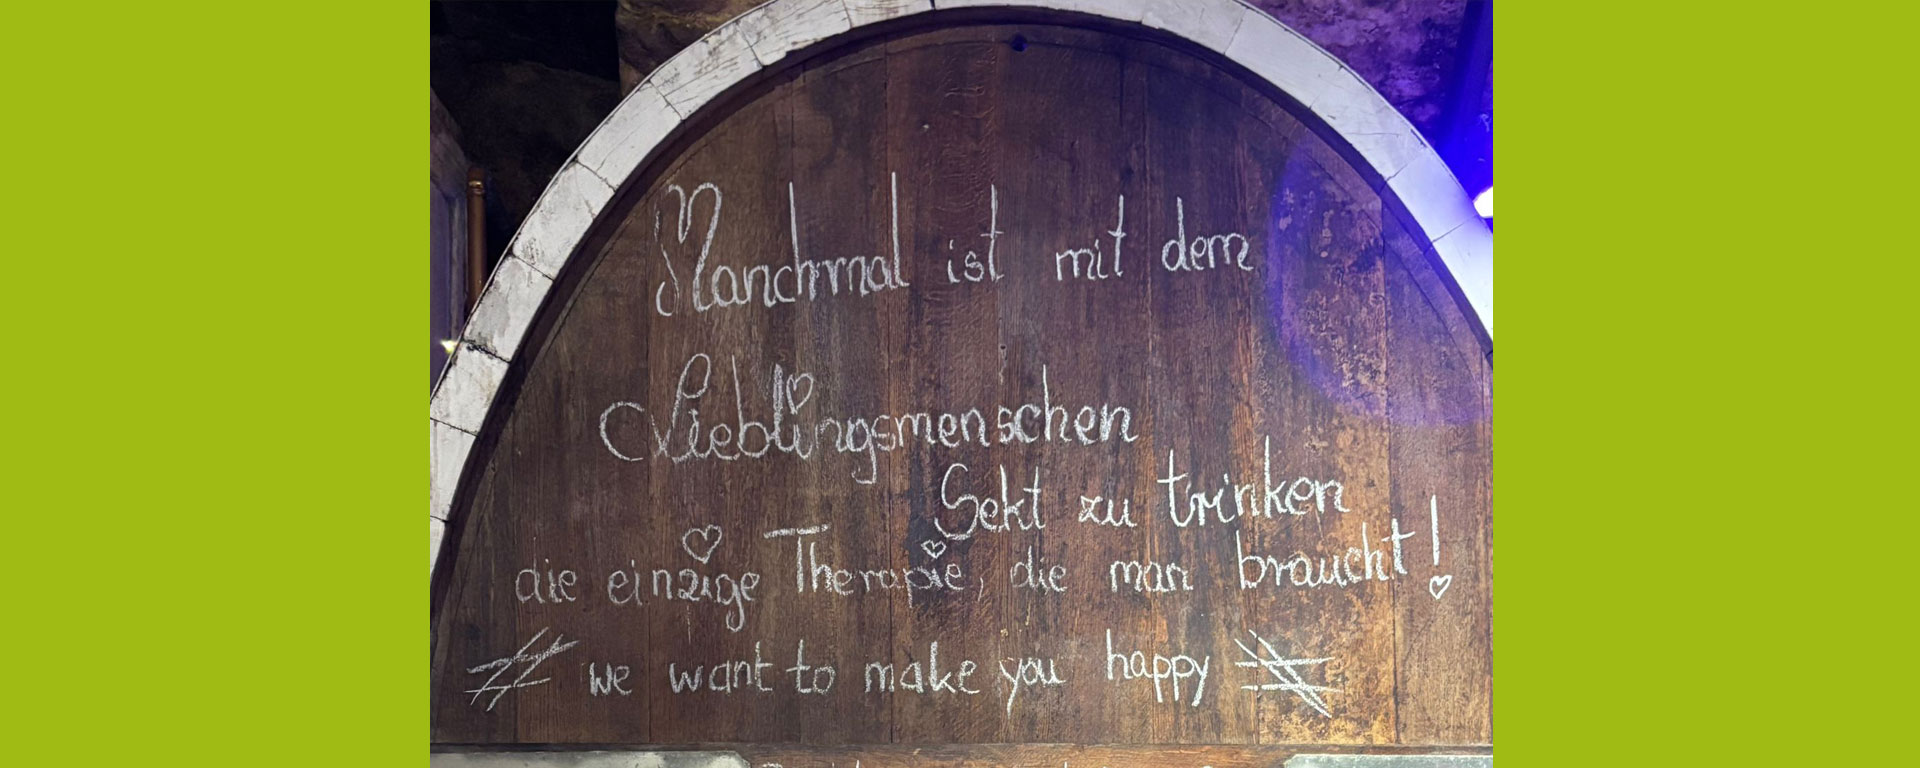 Manchmal ist mit dem
Lieblingsmenschen
Sekt zu trinken
die einzige Therapie, die man braucht!
# we want to make you happy #